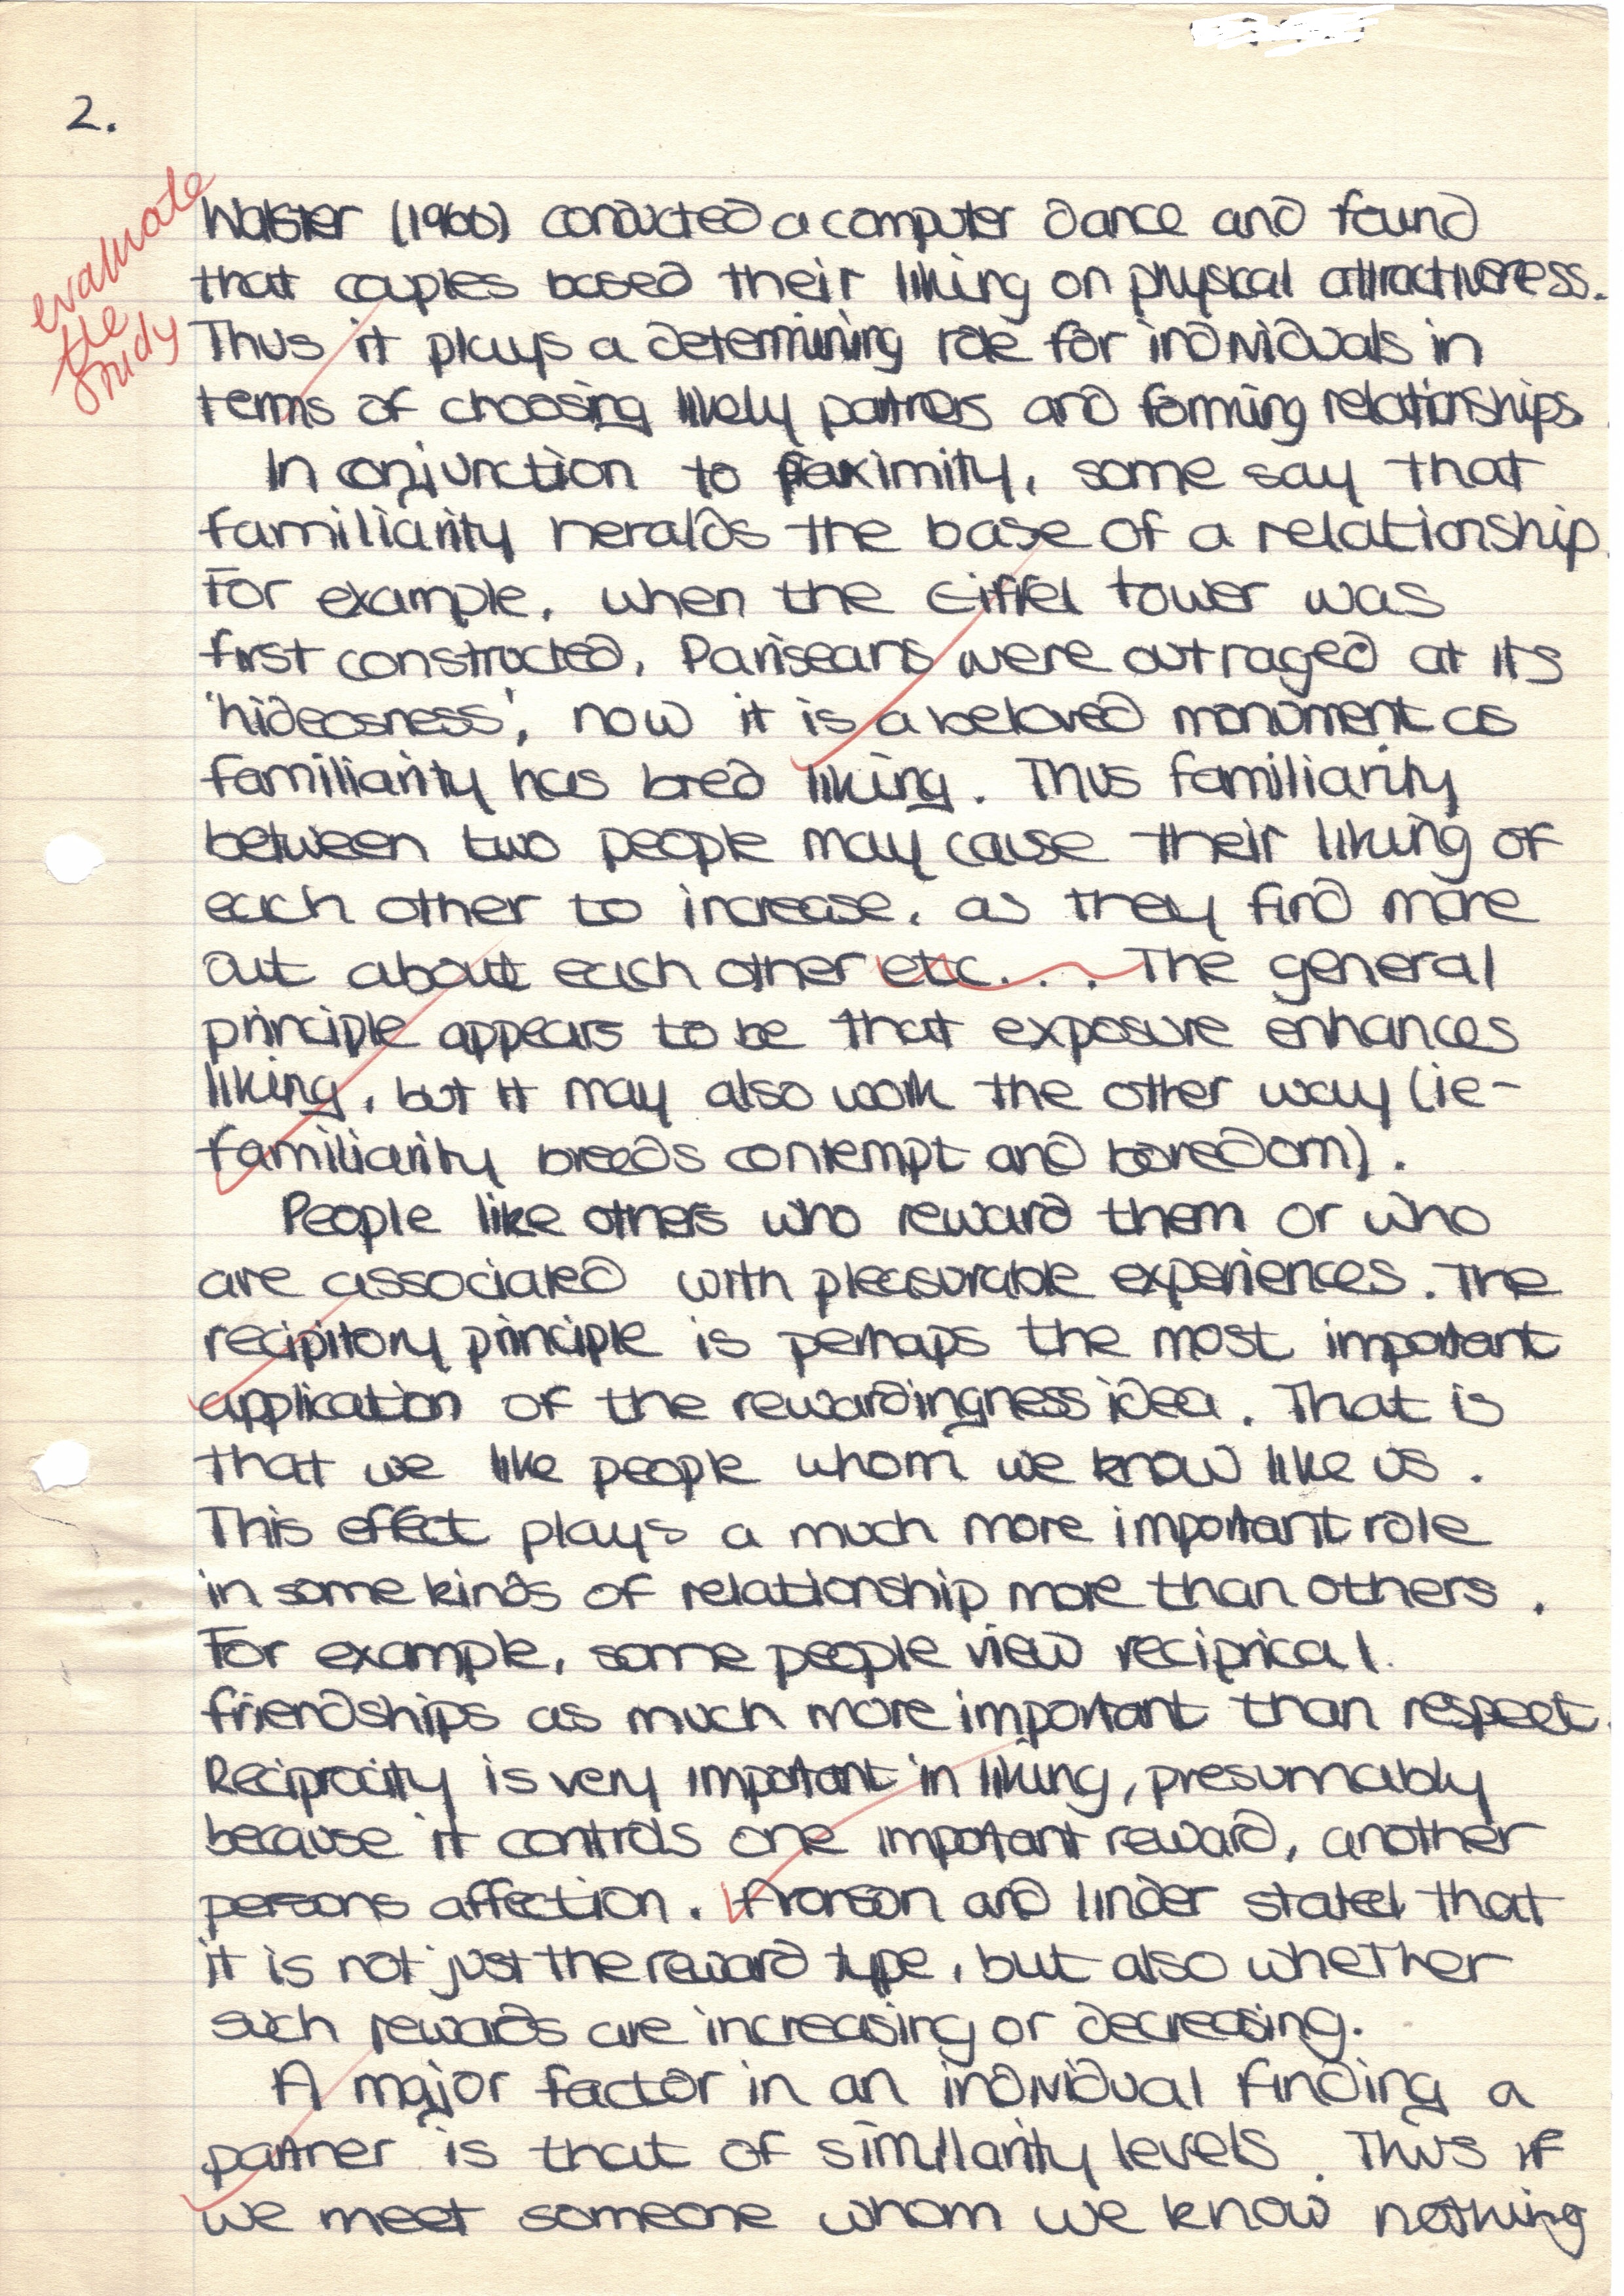 2.
evaluate
the
study
Walster (1966) conducted a computer dance and found
that couples based their liking on physical attractiveness.
Thus it plays a determining role for individuals in
terms of choosing likely partners and forming relationships.
In conjunction to proximity, some say that
familiarity heralds the base of a relationship.
For example, when the Eiffel tower was
first constructed, Pariseans were outraged at its
'hideosness', now it is a beloved monument as
familiarity has bred liking. Thus familiarity
between two people may cause their liking of
each other to increase, as they find more
out about each other etc... The general
principle appears to be that exposure enhances
liking, but it may also work the other way (ie-
familiarity breeds contempt and boredom).
People like others who reward them or who
are associated with pleasurable experiences. The
recipitory principle is perhaps the most important
application of the rewardingness idea. That is
that we like people whom we know like us.
This effect plays a much more important role
in some kinds of relationship more than others.
For example, some people view reciprical
friendships as much more important than respect.
Reciprocity is very important in liking, presumably
because it controls one important reward, another
persons affection. Aronson and linder stated that
it is not just the reward type, but also whether
such rewards are increasing or decreasing.
A major factor in an individual finding a
partner is that of simillarity levels. Thus if
we meet someone whom we know nothing